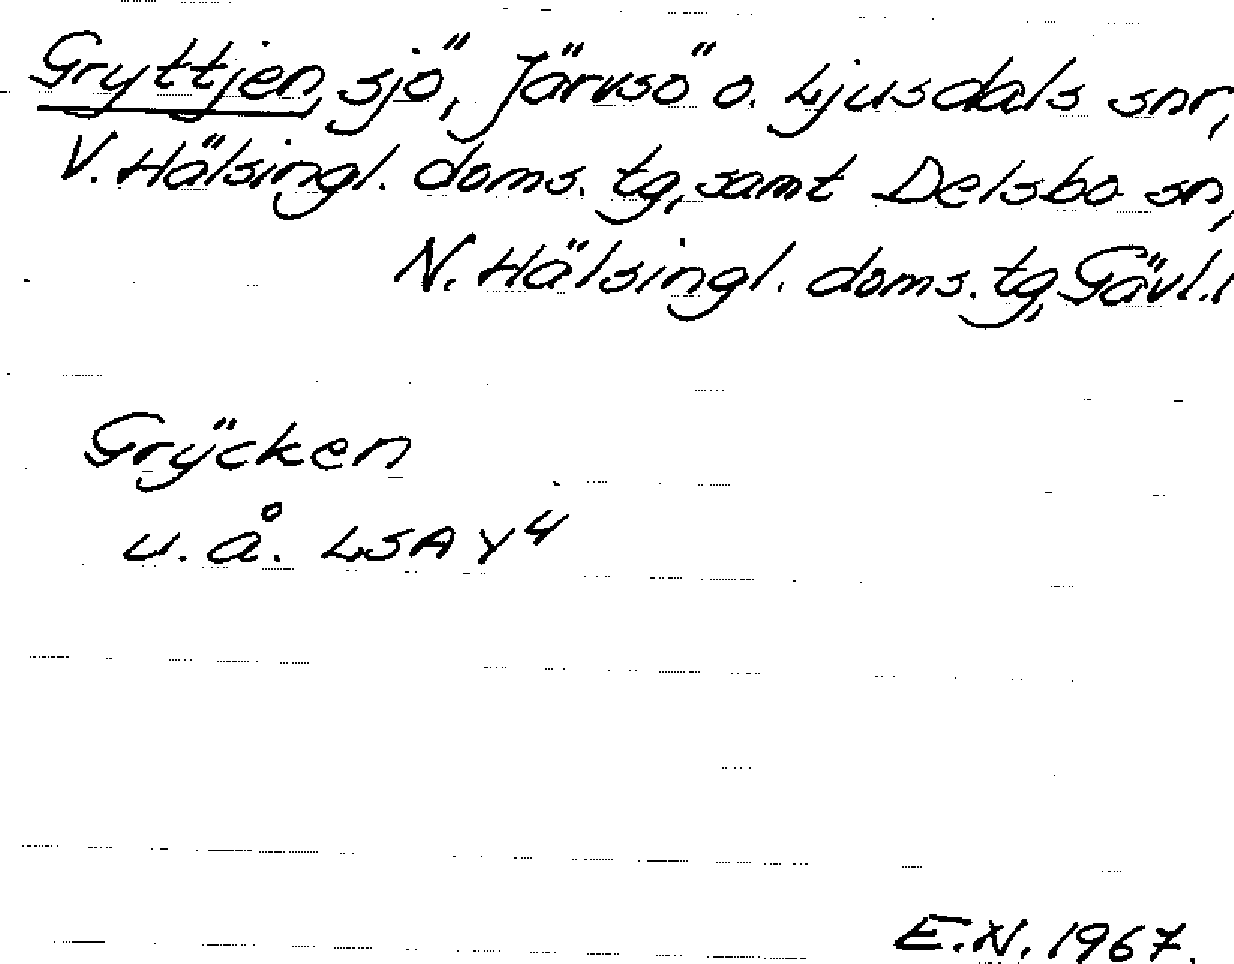 Gryttjen, sjö, Järvsö o. Ljusdals snr,
V. Hälsingl. doms. tg, samt Delsbo sn,
N. Hälsingl. doms. tg, Gävl. l
Grÿcken
u. å. LSA Y4
E.N. 1967.